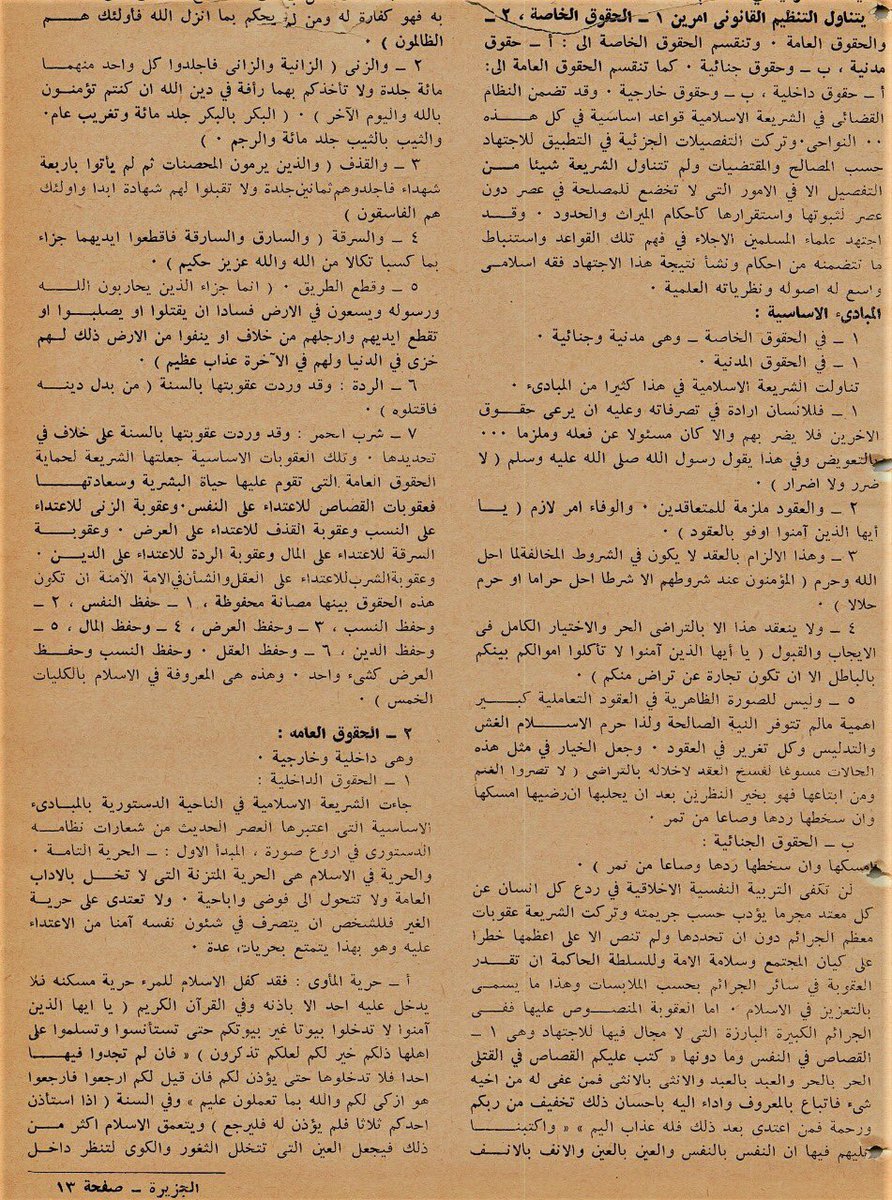 يتناول التنظيم القانونى امرين ١ ــ الحقوق الخاصة ، ٢ ــ
والحقوق العامة ٠ وتنقسم الحقوق الخاصة الى : أ ــ حقوق
مدنية ، ب ــ وحقوق جنائية ٠ كما تنقسم الحقوق العامة الى:
أ ــ حقوق داخلية ، ب ــ وحقوق خارجية ٠ وقد تضمن النظام
القضائى في الشريعة الاسلامية قواعد اساسية في كل هـــذه
٠٠ النواحى٠وتركت التفصيلات الجزئية في التطبيق للاجتهاد
حسب المصالح والمقتضيات ولم تتناول الشريعة شيئا مـــن
التفصيل الا في الامور التى لا تخضع للمصلحة في عصر دون
عصر لثبوتها واستقرارها كأحكام الميراث والحدود ٠ وقـــد
اجتهد علماء المسلمين الاجلاء في فهم تلك القواعد واستنباط
ما تتضمنه من احكام ونشأ نتيجة هذا الاجتهاد فقه اسلامى
واسع له اصوله ونظرياته العلمية ٠
المبادىء الاساسية :
١ ــ في الحقوق الخاصة ــ وهى مدنية وجنائية ٠
١ ــ في الحقوق المدنية ٠
تناولت الشريعة الاسلامية في هذا كثيرا من المبادىء ٠
١ ــ فللانسان ارادة في تصرفاته وعليه ان يرعى حقـــوق
الاخرين فلا يضر بهم والا كان مسئولا عن فعله وملزما ٠٠٠
بالتعويض وفي هذا يقول رسول الله صلى الله عليه وسلم ( لا
ضرر ولا اضرار ) ٠
٢ ــ والعقود ملزمة للمتعاقدين ٠ والوفاء امر لازم ( يـــا
أيها الذين آمنوا اوفو بالعقود ) ٠
٣ ــ وهذا الالزام بالعقد لا يكون في الشروط المخالفةلما احل
الله وحرم ( المؤمنون عند شروطهم الا شرطا احل حراما او حرم
حلالا ) ٠
٤ ــ ولا ينعقد هذا الا بالتراضى الحر والاختيار الكامل فى
الايجاب والقبول ( يا أيها الذين آمنوا لا تأكلوا اموالكم بينكم
بالباطل الا ان تكون تجارة عن تراض منكم ) ٠
٥ ــ وليس للصورة الظاهرية في العقود التعاملية كبـــير
اهمية مالم تتوفر النية الصالحة ولذا حرم الاســـلام الغش
والتدليس وكل تغرير في العقود ٠ وجعل الخيار في مثل هذه
الحالات مسوغا لفسخ العقد لاخلاله بالتراضى ( لا تصروا الغنم
ومن ابتاعها فهو بخير النظرين بعد ان يحلبها ان رضيها امسكها
وان سخطها ردها وصاعا من تمر ٠
ب ــ الحقوق الجنائية :
امسكها وان سخطها ردها وصاعا من تمر ) ٠
لن تكفى التربية النفسية الاخلاقية في ردع كل انسان عن
كل معتد مجرما يؤدب حسب جريمته وتركت الشريعة عقوبات
معظم الجرائم دون ان تحددها ولم تنص الا على اعظمها خطرا
على كيان المجتمع وسلامة الامة وللسلطة الحاكمة ان تقـــدر
العقوبة في سائر الجرائم بحسب الملابسات وهذا ما يسمى
بالتعزيز في الاسلام ٠ اما العقوبة المنصـــوص عليها ففـــى
الجرائم الكبيرة البارزة التى لا مجال فيها للاجتهاد وهى ١ ــ
القصاص في النفس وما دونها « كتب عليكم القصاص في القتلى
الحر بالحر والعبد بالعبد والانثى بالانثى فمن عفى له من اخيه
شىء فاتباع بالمعروف واداء اليه باحسان ذلك تخفيف من ربكم
ورحمة فمن اعتدى بعد ذلك فله عذاب اليم » « واكتبنـــا
عليهم فيها ان النفس بالنفس والعين بالعين والانف بالانــف
به فهو كفارة له ومن لم يحكم بما انزل الله فأولئك هـــم
الظالمون ) ٠
٢ ــ والزنى ( الزانية والزانى فاجلدوا كل واحد منهمـــا
مائة جلدة ولا تأخذكم بهما رأفة في دين الله ان كنتم تؤمنـون
بالله واليوم الآخر ) ٠ ( البكر بالبكر جلد مائة وتغريب عام٠
والثيب بالثيب جلد مائة والرجم ٠ )
٣ ــ والقذف ( والذين يرمون المحصنات ثم لم يأتوا باربعة
شهداء فاجلدوهم ثمانين جلدة ولا تقبلوا لهم شهادة ابدا واولئك
هم الفاسقون )
٤ ــ والسرقة ( والسارق والسارقة فاقطعوا ايديهما جزاء
بما كسبا نكالا من الله والله عزيز حكيم ) ٠
٥ ــ وقطع الطريق ٠ ( انما جزاء الذين يحاربون اللـــه
ورسوله ويسعون في الارض فسادا ان يقتلوا او يصلبـــوا او
تقطع ايديهم وارجلهم من خلاف او ينفوا من الارض ذلك لـــهم
خزى في الدنيا ولهم في الآخرة عذاب عظيم ) ٠
٦ ــ الردة : وقد وردت عقوبتها بالسنة ( من بدل دينـــه
فاقتلوه ) ٠
٧ ــ شرب الخمر : وقد وردت عقوبتها بالسنة على خلاف في
تحديدها ٠ وتلك العقوبات الاساسية جعلتها الشريعة لحماية
الحقوق العامة التى تقوم عليها حياة البشرية وسعادتهـــا
فعقوبات القصاص للاعتداء على النفس٠وعقوبة الزنى للاعتداء
على النسب وعقوبة القذف للاعتداء على العرض ٠ وعقوبـــة
السرقة للاعتداء على المال وعقوبة الردة للاعتداء على الديـــن ٠
وعقوبة الشرب للاعتداء على العقل والشأن في الامة الآمنة ان تكون
هذه الحقوق بينها مصانة محفوظة ، ١ ــ حفظ النفس ، ٢ ــ
وحفظ النسب ، ٣ ــ وحفظ العرض ، ٤ ــ وحفظ المال ، ٥ ــ
وحفظ الدين ، ٦ ــ وحفظ العقل ٠ وحفظ النسب وحفـــظ
العرض كشىء واحد ٠ وهذه هى المعروفة في الاسلام بالكليات
الخمس ) ٠
٢ ــ الحقوق العامه :
وهى داخلية وخارجية ٠
١ ــ الحقوق الداخلية :
جاءت الشريعة الاسلامية في الناحية الدستورية بالمبادىء
الاساسية التى اعتبرها العصر الحديث من شعارات نظامـــه
الدستورى في اروع صورة ، المبدأ الاول : ــ الحرية التامة ٠
والحرية في الاسلام هى الحرية المتزنة التى لا تخـــل بالاداب
العامة ولا تتحول الى فوضى واباحية ٠ ولا تعتدى على حريـــة
الغير فللشخص ان يتصرف في شئون نفسه آمنا من الاعتداء
عليه وهو بهذا يتمتع بحريات عدة ٠
أ ــ حرية المأوى : فقد كفل الاسلام للمرء حرية مسكنه فلا
يدخل عليه احد الا باذنه وفي القرآن الكريم ( يا ايها الذين
آمنوا لا تدخلوا بيوتا غير بيوتكم حتى تستأنسوا وتسلموا على
اهلها ذلكم خير لكم لعلكم تذكرون ) « فان لم تجدوا فيهـــا
احدا فلا تدخلوها حتى يؤذن لكم فان قيل لكم ارجعوا فارجعوا
هو ازكى لكم والله بما تعملون عليم » وفي السنة ( اذا استأذن
احدكم ثلاثا فلم يؤذن له فليرجع ) ويتعمق الاسلام اكثر مـــن
ذلك فيجعل العين التى تتخلل الثغور والكوى لتنظر داخل
الجزيرة ــ صفحة ١٣